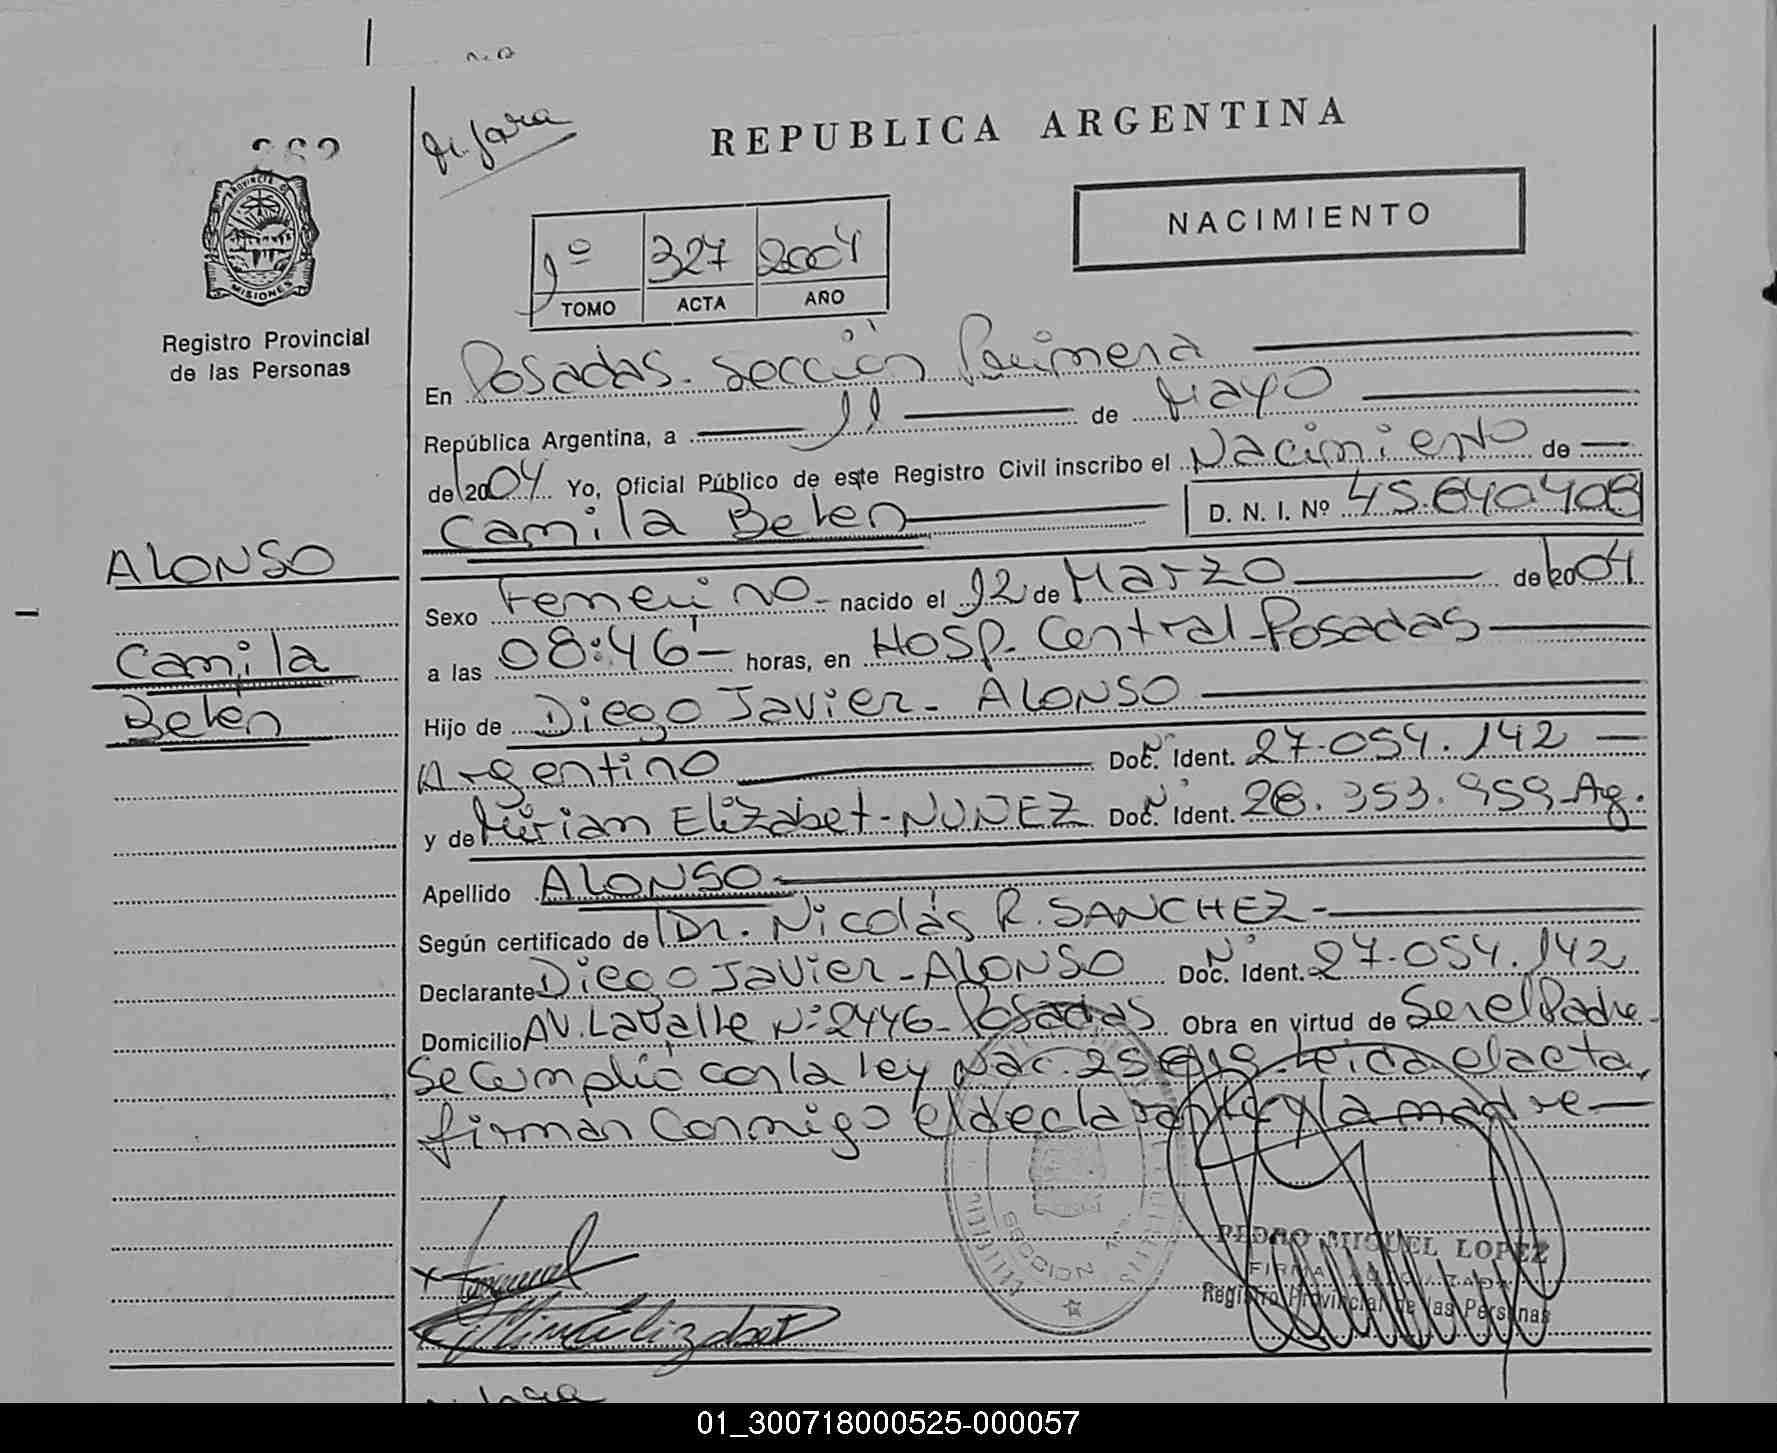 REPUBLICA ARGENTINA
NACIMIENTO
PROVINCIA DE
MISIONES
Registro Provincial
de las Personas
1º 327 2004
TOMO ACTA AÑO
En Posadas. Sección Primera
República Argentina, a 11 de Mayo
de 2004 Yo, Oficial Público de este Registro Civil inscribo el Nacimiento de
Camila Belen D. N. I. Nº 45.640.408
ALONSO
Camila
Belén
Sexo Femenino - nacido el 12 de Marzo de 2004
a las 08:46 - horas, en Hosp. Central - Posadas
Hijo de Diego Javier - ALONSO
Argentino Doc. Nº Ident. 27.054.142
y de Mirian Elizabet - NUNEZ Doc. Nº Ident. 28.353.959 - Ag.
Apellido ALONSO -
Según certificado de Dr. Nicolás R. SANCHEZ -
Declarante Diego Javier - ALONSO Doc. Nº Ident. 27.054.142
Domicilio AV. Lavalle Nº 2446 - Posadas Obra en virtud de Ser el Padre -
Se Cumplió con la ley Nac. Leida el acta,
firman Conmigo el declarante y la madre
SECCION
PEDRO MIGUEL LOPEZ
FIRMA AUTORIZADA
Registro Provincial de las Personas
Elizabet
01_300718000525-000057